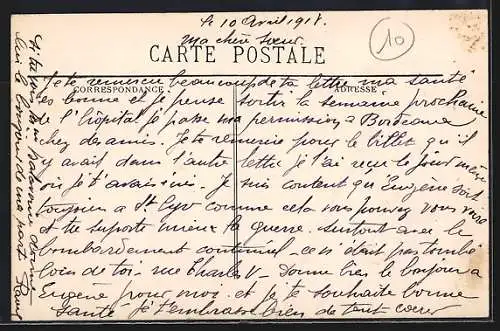 le 10 Avril 1918.
ma chère sœur.
10
CARTE POSTALE
CORRESPONDANCE
ADRESSE
Je te remercie beaucoup de ta lettre ma santé
est bonne et je pense sortir la semaine prochaine
de l'hôpital je passe ma permission à Bordeaux
chez des amis. Je te remercie pour le billet qu'il
y avait dans l'autre lettre je l'ai reçu le jour même
où je t'avais écris. Je suis content qu'Eugène soit
toujours a St Cyr comme cela vous pouvez vous voir
et tu supporte mieux la guerre. surtout avec le
bombardement continuel. ce n'était pas tombé
loin de toi rue Charles V. Donne bien le bonjour a
Eugène pour moi et je te souhaite bonne
santé Je t'embrasse bien de tout cœur
Si tu vois
dis lui le bonjour de ma part Paul